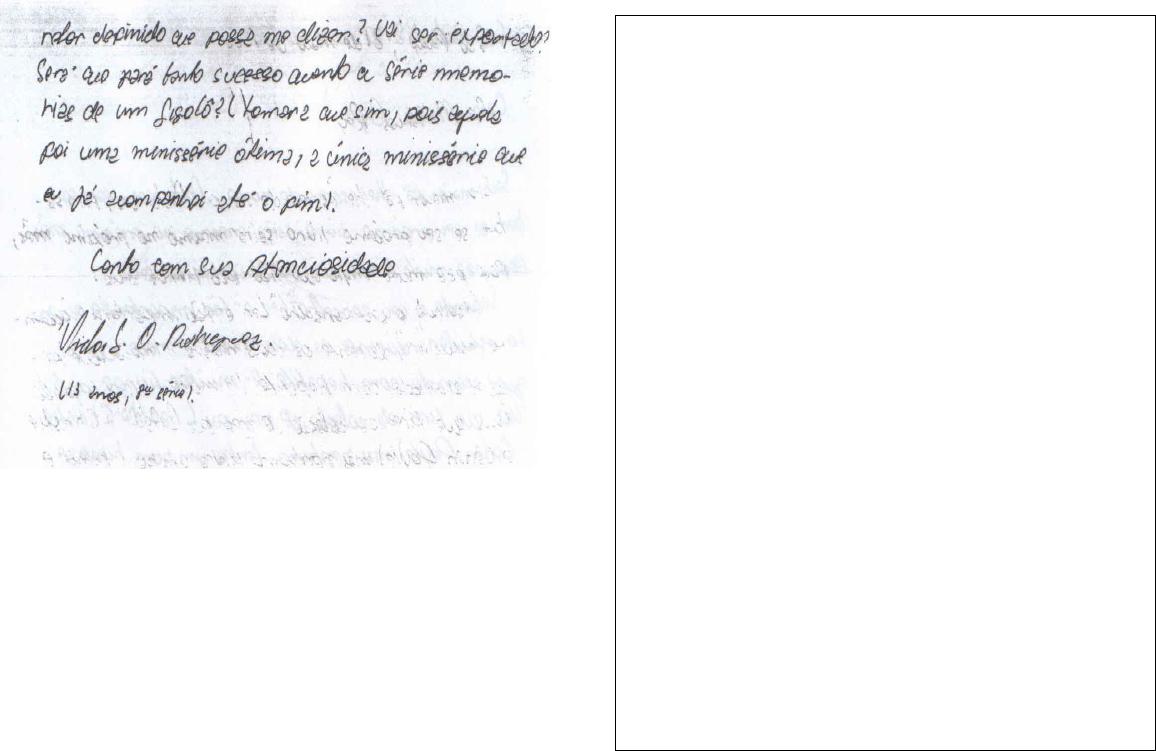 definido que possa me dizer? Vai ser exportado?
Será que fará tanto sucesso quanto a série memo-
rias de um gigolô? (tomara que sim, pois aquela
foi uma minissérie ótima, a única minissérie que
eu já acompanhei até o fim).
Conto com sua Atenciosidade
O. Rodrigues
(13 anos, 8ª série).